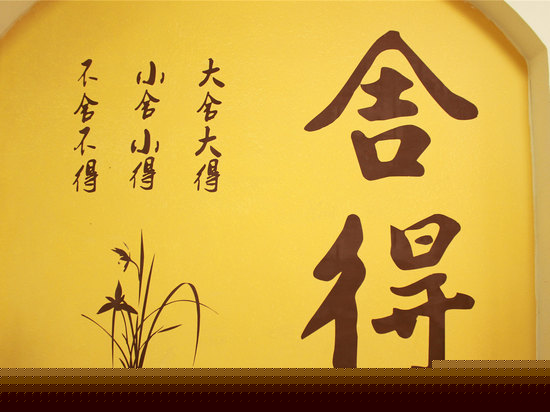 舍得
大舍大得
小舍小得
不舍不得